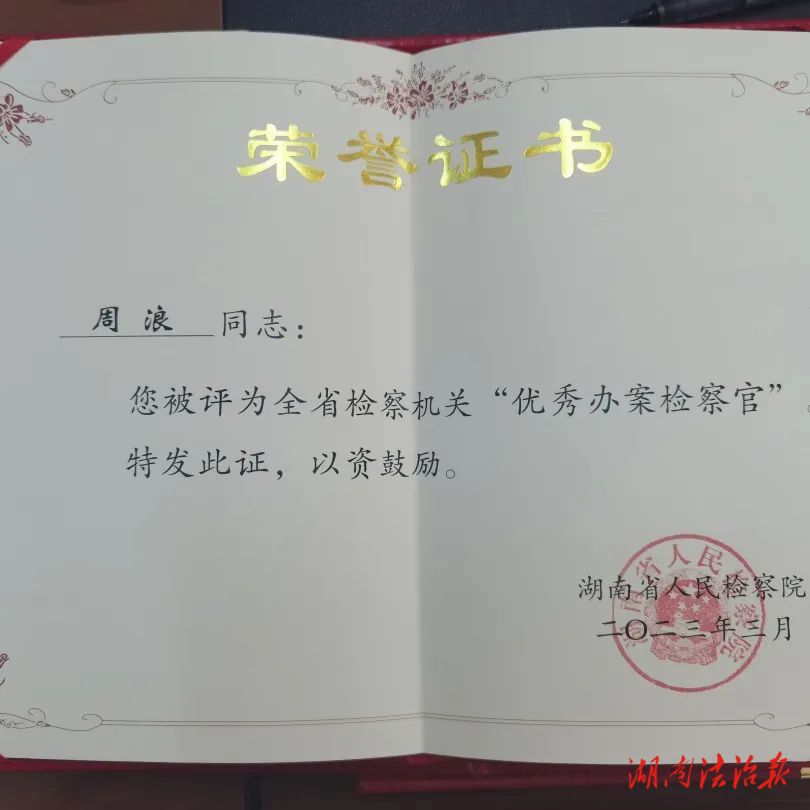 荣誉证书
周浪 同志：
您被评为全省检察机关“优秀办案检察官”，
特发此证，以资鼓励。
湖南省人民检察院
二〇二三年三月
湖南省人民检察院
湖南法治报